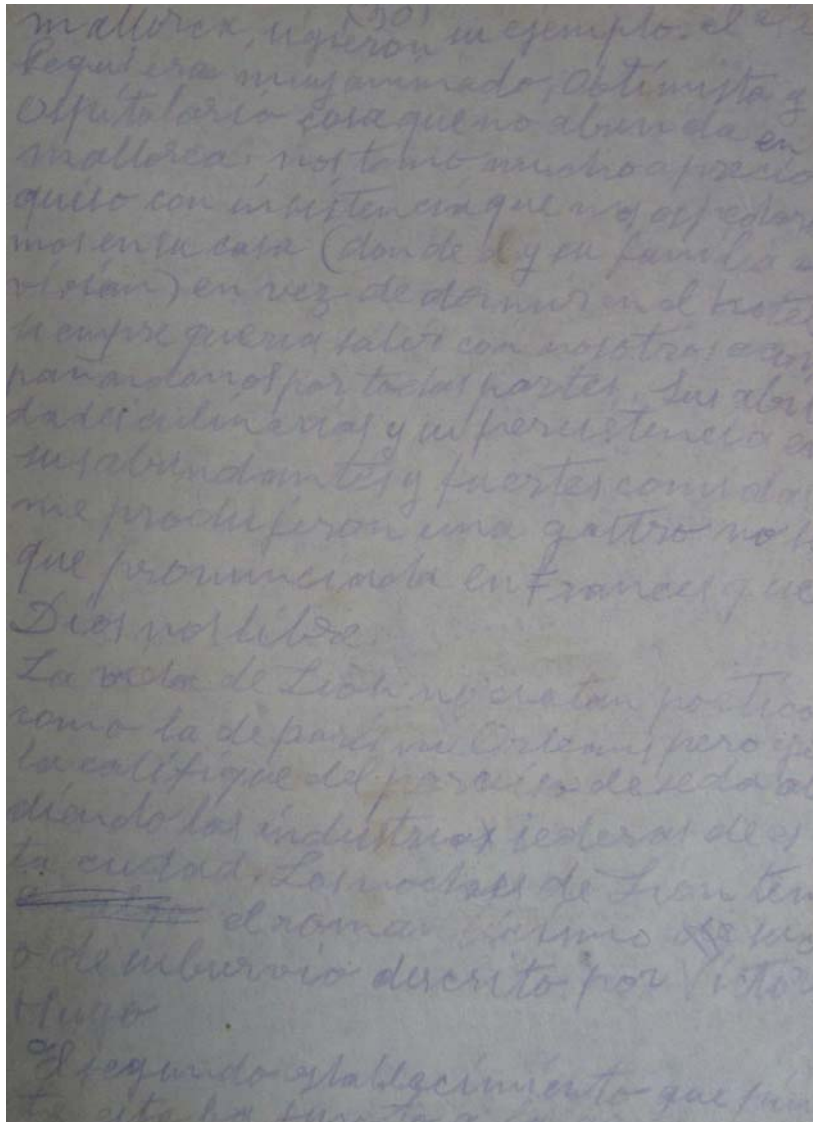 (30)
mallorca, sigieron su ejemplo. el
era muy animado, Optimista y
ospitalario cosa que no abunda en
mallorca; nos tomo mucho aprecio
quiso con insistencia que nos ospedara
mos en su casa (donde el y su familia
vivian) en vez de dormir en el hotel
siempre queria salir con nosotros acom
pañandonos por todas partes. Sus abili
dades culinarias y su persistencia en
sus abundantes y fuertes comidas
me produjeron una gastro no
que pronunciada en Frances que
Dios nos libre.
La vida de Lion no era tan poetica
como la de paris ni Orleans pero yo
la califique del paraiso de seda
diendo las industrias sederas de es
ta ciudad. Las noches de Lion ten
el roman
o de suburvio descrito por Victor
Hugo
El segundo establecimiento que